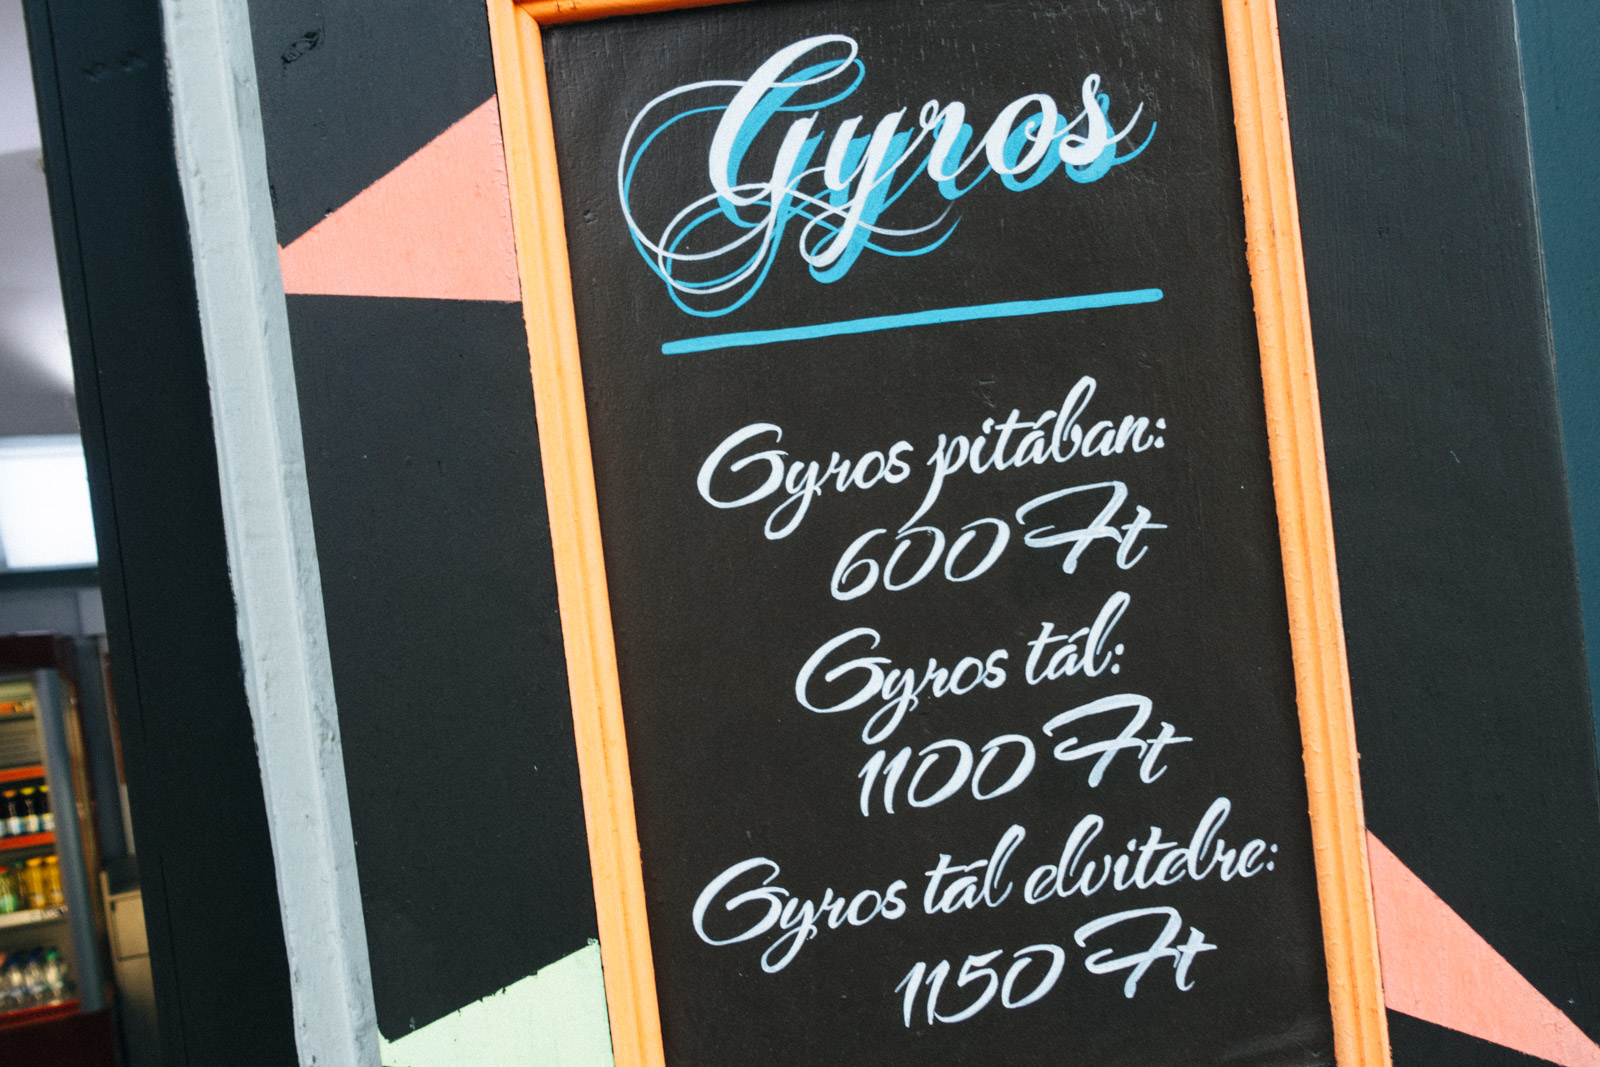 Gyros
Gyros pitában:
600 Ft
Gyros tál:
1100 Ft
Gyros tál elvitelre:
1150 Ft